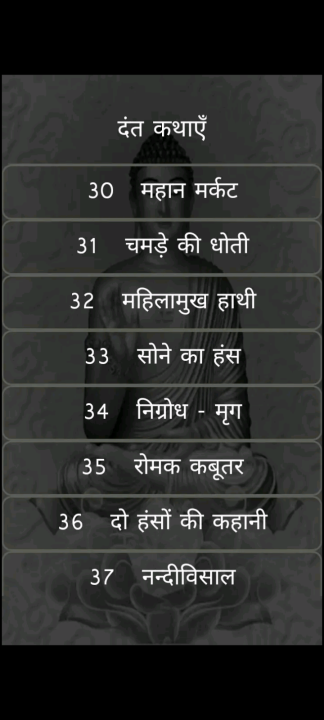 दंत कथाएँ
30 महान मर्कट
31 चमड़े की धोती
32 महिलामुख हाथी
33 सोने का हंस
34 निग्रोध - मृग
35 रोमक कबूतर
36 दो हंसों की कहानी
37 नन्दीविसाल